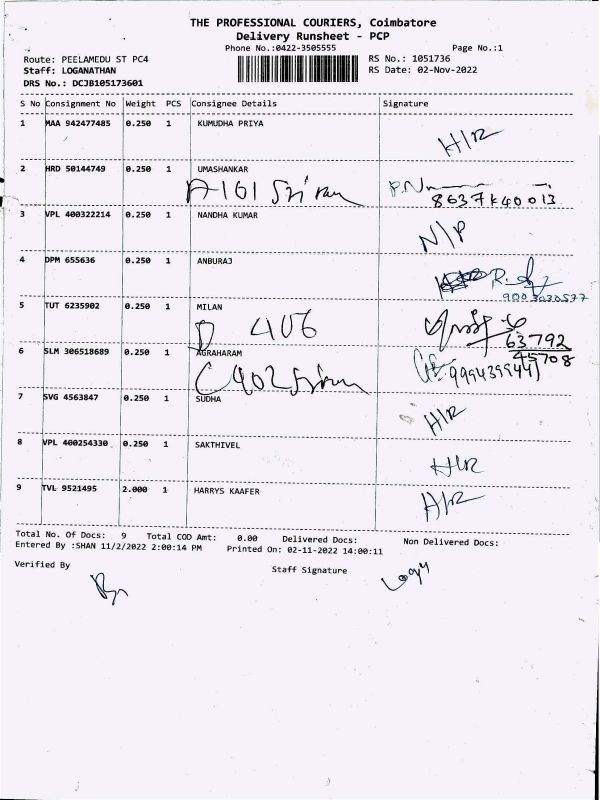 THE PROFESSIONAL COURIERS, Coimbatore
Delivery Runsheet - PCP
Phone No.:0422-3505555 Page No.:1
Route: PEELAMEDU ST PC4 RS No.: 1051736
Staff: LOGANATHAN RS Date: 02-Nov-2022
DRS No.: DCJB105173601
S No Consignment No Weight PCS Consignee Details Signature
1 MAA 942477485 0.250 1 KUMUDHA PRIYA
H/R
2 HRD 50144749 0.250 1 UMASHANKAR
A-101 Sriram
3 VPL 400322214 0.250 1 NANDHA KUMAR
N/P
4 DPM 655636 0.250 1 ANBURAJ
5 TUT 6235902 0.250 1 MILAN
D 406
63792
45708
6 SLM 306518689 0.250 1 AGRAHARAM
C 402 Sriram
7 SVG 4563847 0.250 1 SUDHA
H/R
8 VPL 400254330 0.250 1 SAKTHIVEL
H/R
9 TVL 9521495 2.000 1 HARRYS KAAFER
H/R
Total No. Of Docs: 9 Total COD Amt: 0.00 Delivered Docs: Non Delivered Docs:
Entered By :SHAN 11/2/2022 2:00:14 PM Printed On: 02-11-2022 14:00:11
Verified By Staff Signature